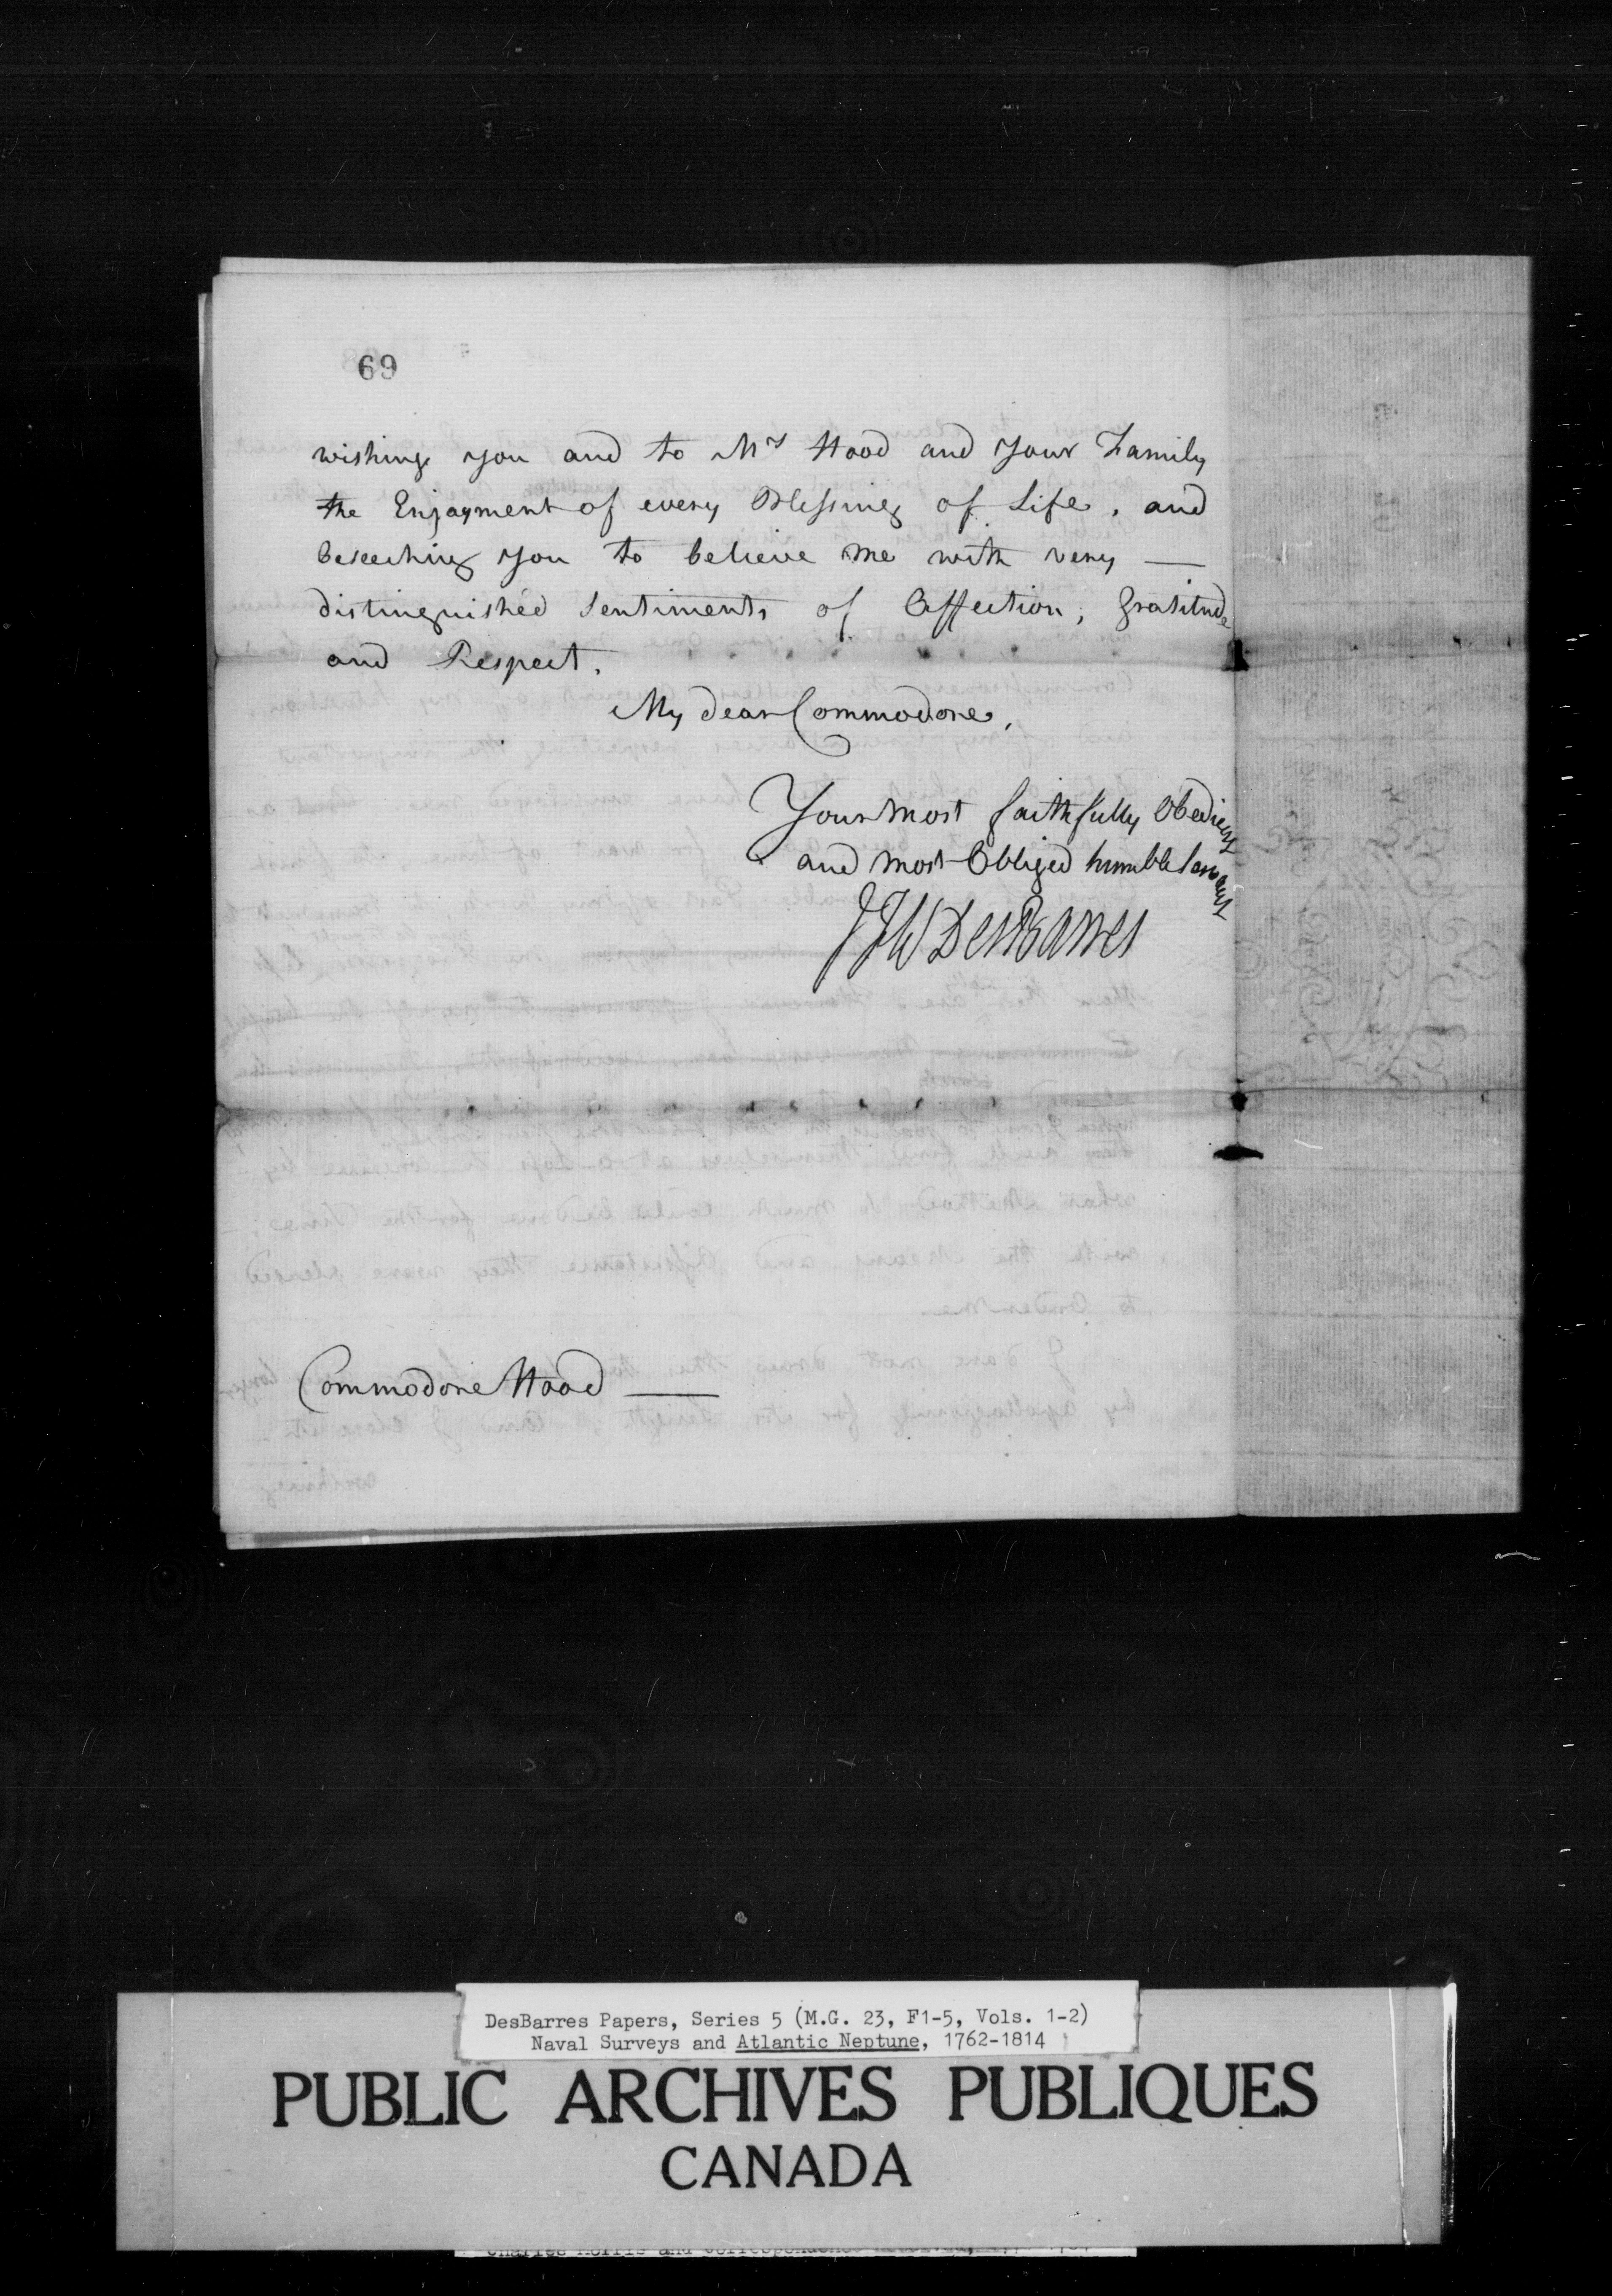 69
wishing you and to Mrs Hood and your Family
the Enjoyment of every Blessing of Life, and
beseeching you to believe me with very —
distinguished Sentiments of Affection, Gratitude
and Respect.
My dear Commodore,
Your most faithfully Obedient
and most Obliged humble Servant
JFW DesBarres
Commodore Hood —
DesBarres Papers, Series 5 (M.G. 23, F1-5, Vols. 1-2)
Naval Surveys and Atlantic Neptune, 1762-1814
PUBLIC ARCHIVES PUBLIQUES
CANADA